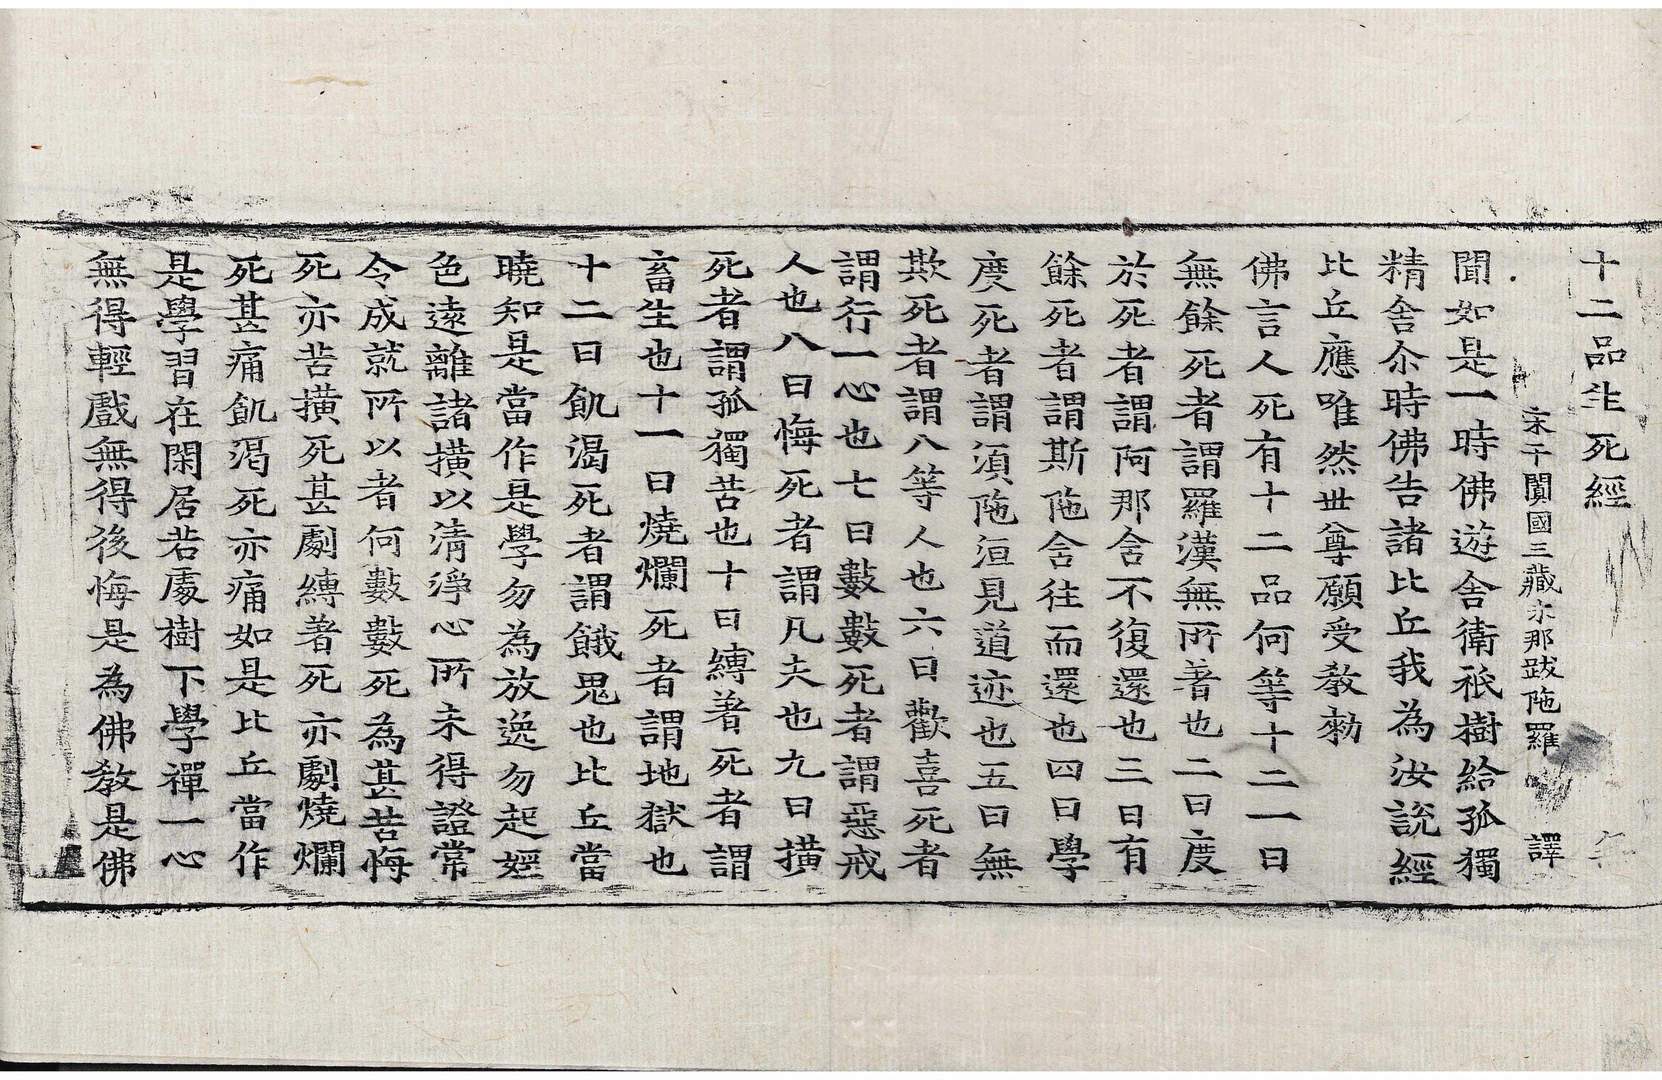 十二品生死經
宋于闐國三藏求那跋陁羅 譯
聞如是一時佛遊舍衛祇樹給孤獨
精舍尒時佛告諸比丘我為汝說經
比丘應唯然世尊願受教勑
佛言人死有十二品何等十二一曰
無餘死者謂羅漢無所著也二曰度
於死者謂阿那含不復還也三曰有
餘死者謂斯陁含往而還也四曰學
度死者謂須陁洹見道迹也五曰無
欺死者謂八等人也六曰歡喜死者
謂行一心也七曰數數死者謂惡戒
人也八曰悔死者謂凡夫也九曰撗
死者謂孤獨苦也十曰縛著死者謂
畜生也十一曰燒爛死者謂地獄也
十二曰飢渴死者謂餓鬼也比丘當
曉知是當作是學勿為放逸勿起婬
色遠離諸撗以清淨心所未得證常
令成就所以者何數數死為甚苦悔
死亦苦撗死甚劇縛著死亦劇燒爛
死甚痛飢渴死亦痛如是比丘當作
是學習在閑居若處樹下學禪一心
無得輕戲無得後悔是為佛教是佛